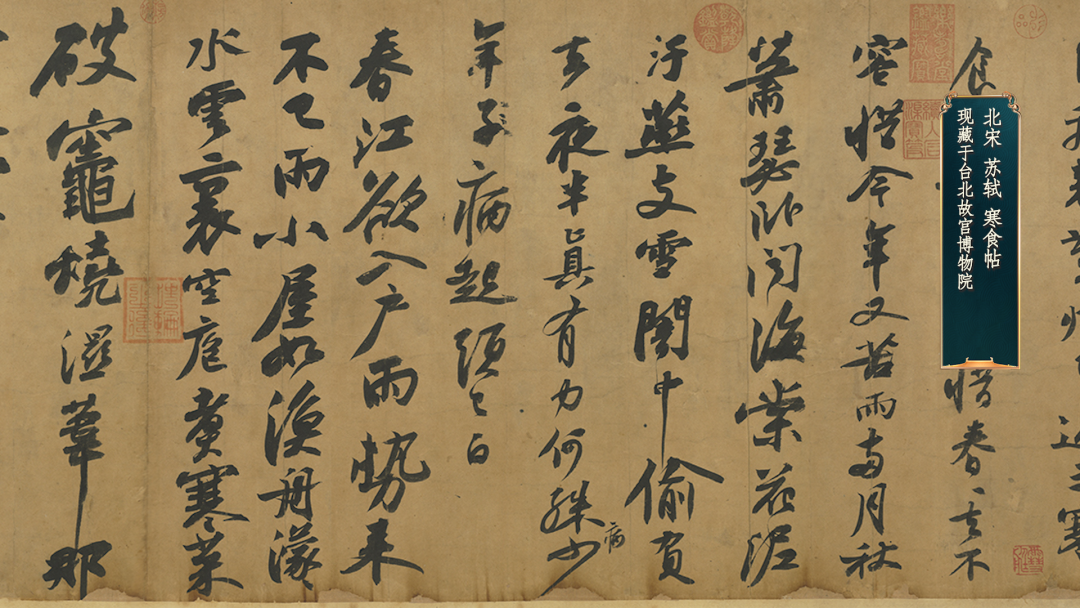 食惜春〻去不
容惜今年又苦雨兩月秋
蕭瑟臥聞海棠花泥
汙燕支雪闇中偷負
去夜半真有力何殊少
病
年子病起頭已白
春江欲入户雨勢來
不已雨小屋如漁舟濛
水雲裏空庖煮寒菜
破竈燒濕葦那
北宋 苏轼 寒食帖
现藏于台北故宫博物院